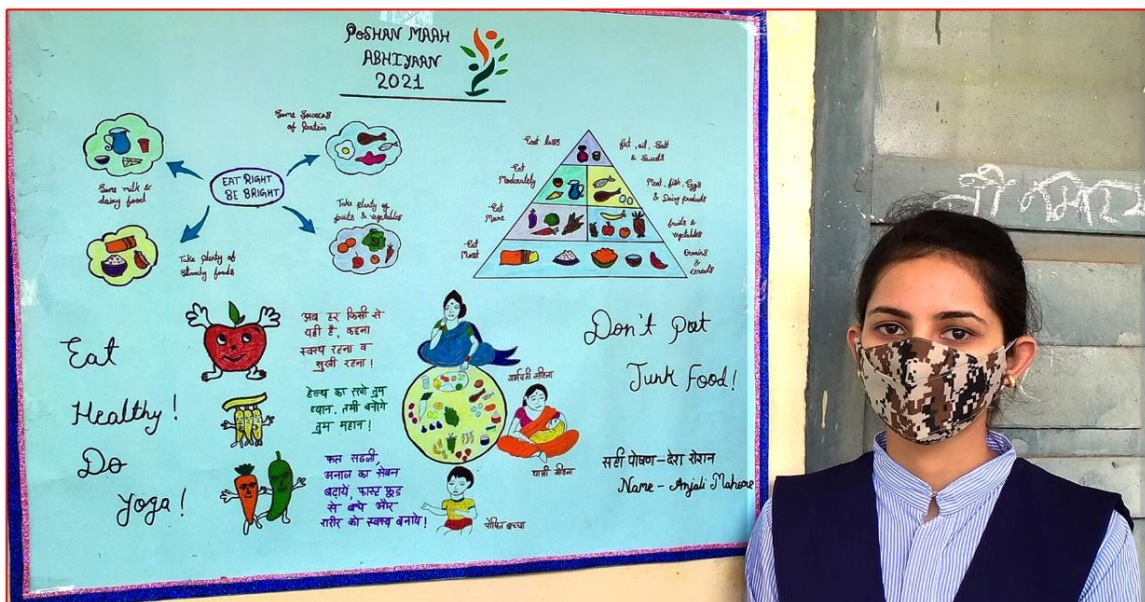 POSHAN MAAH
ABHIYAAN
2021
Some Sources
of Protein
EAT RIGHT
BE BRIGHT
Some milk &
dairy food
Take plenty of
fruits & vegetables
Take plenty of
Starchy foods
Eat less
fat, oil, Salt
& Sweets
Eat
Moderately
Meat, fish, Eggs
& Dairy products
Eat
More
fruits &
vegetables
Eat
Most
Grains
&
cereals
Eat
Healthy!
Do
Yoga!
अब हर किसी से
यही है, कहना
स्वस्थ रहना व
सुखी रहना!
हेल्थ का रखो तुम
ध्यान, तभी बनोगे
तुम महान!
फल सब्जी,
अनाज का सेवन
बढ़ायें, फास्ट फूड
से बचे और
शरीर को स्वस्थ बनाये!
गर्भवती महिला
धात्री महिला
पोषित बच्चा
Don't
Junk Food!
सही पोषण - देश रोशन
Name - Anjali